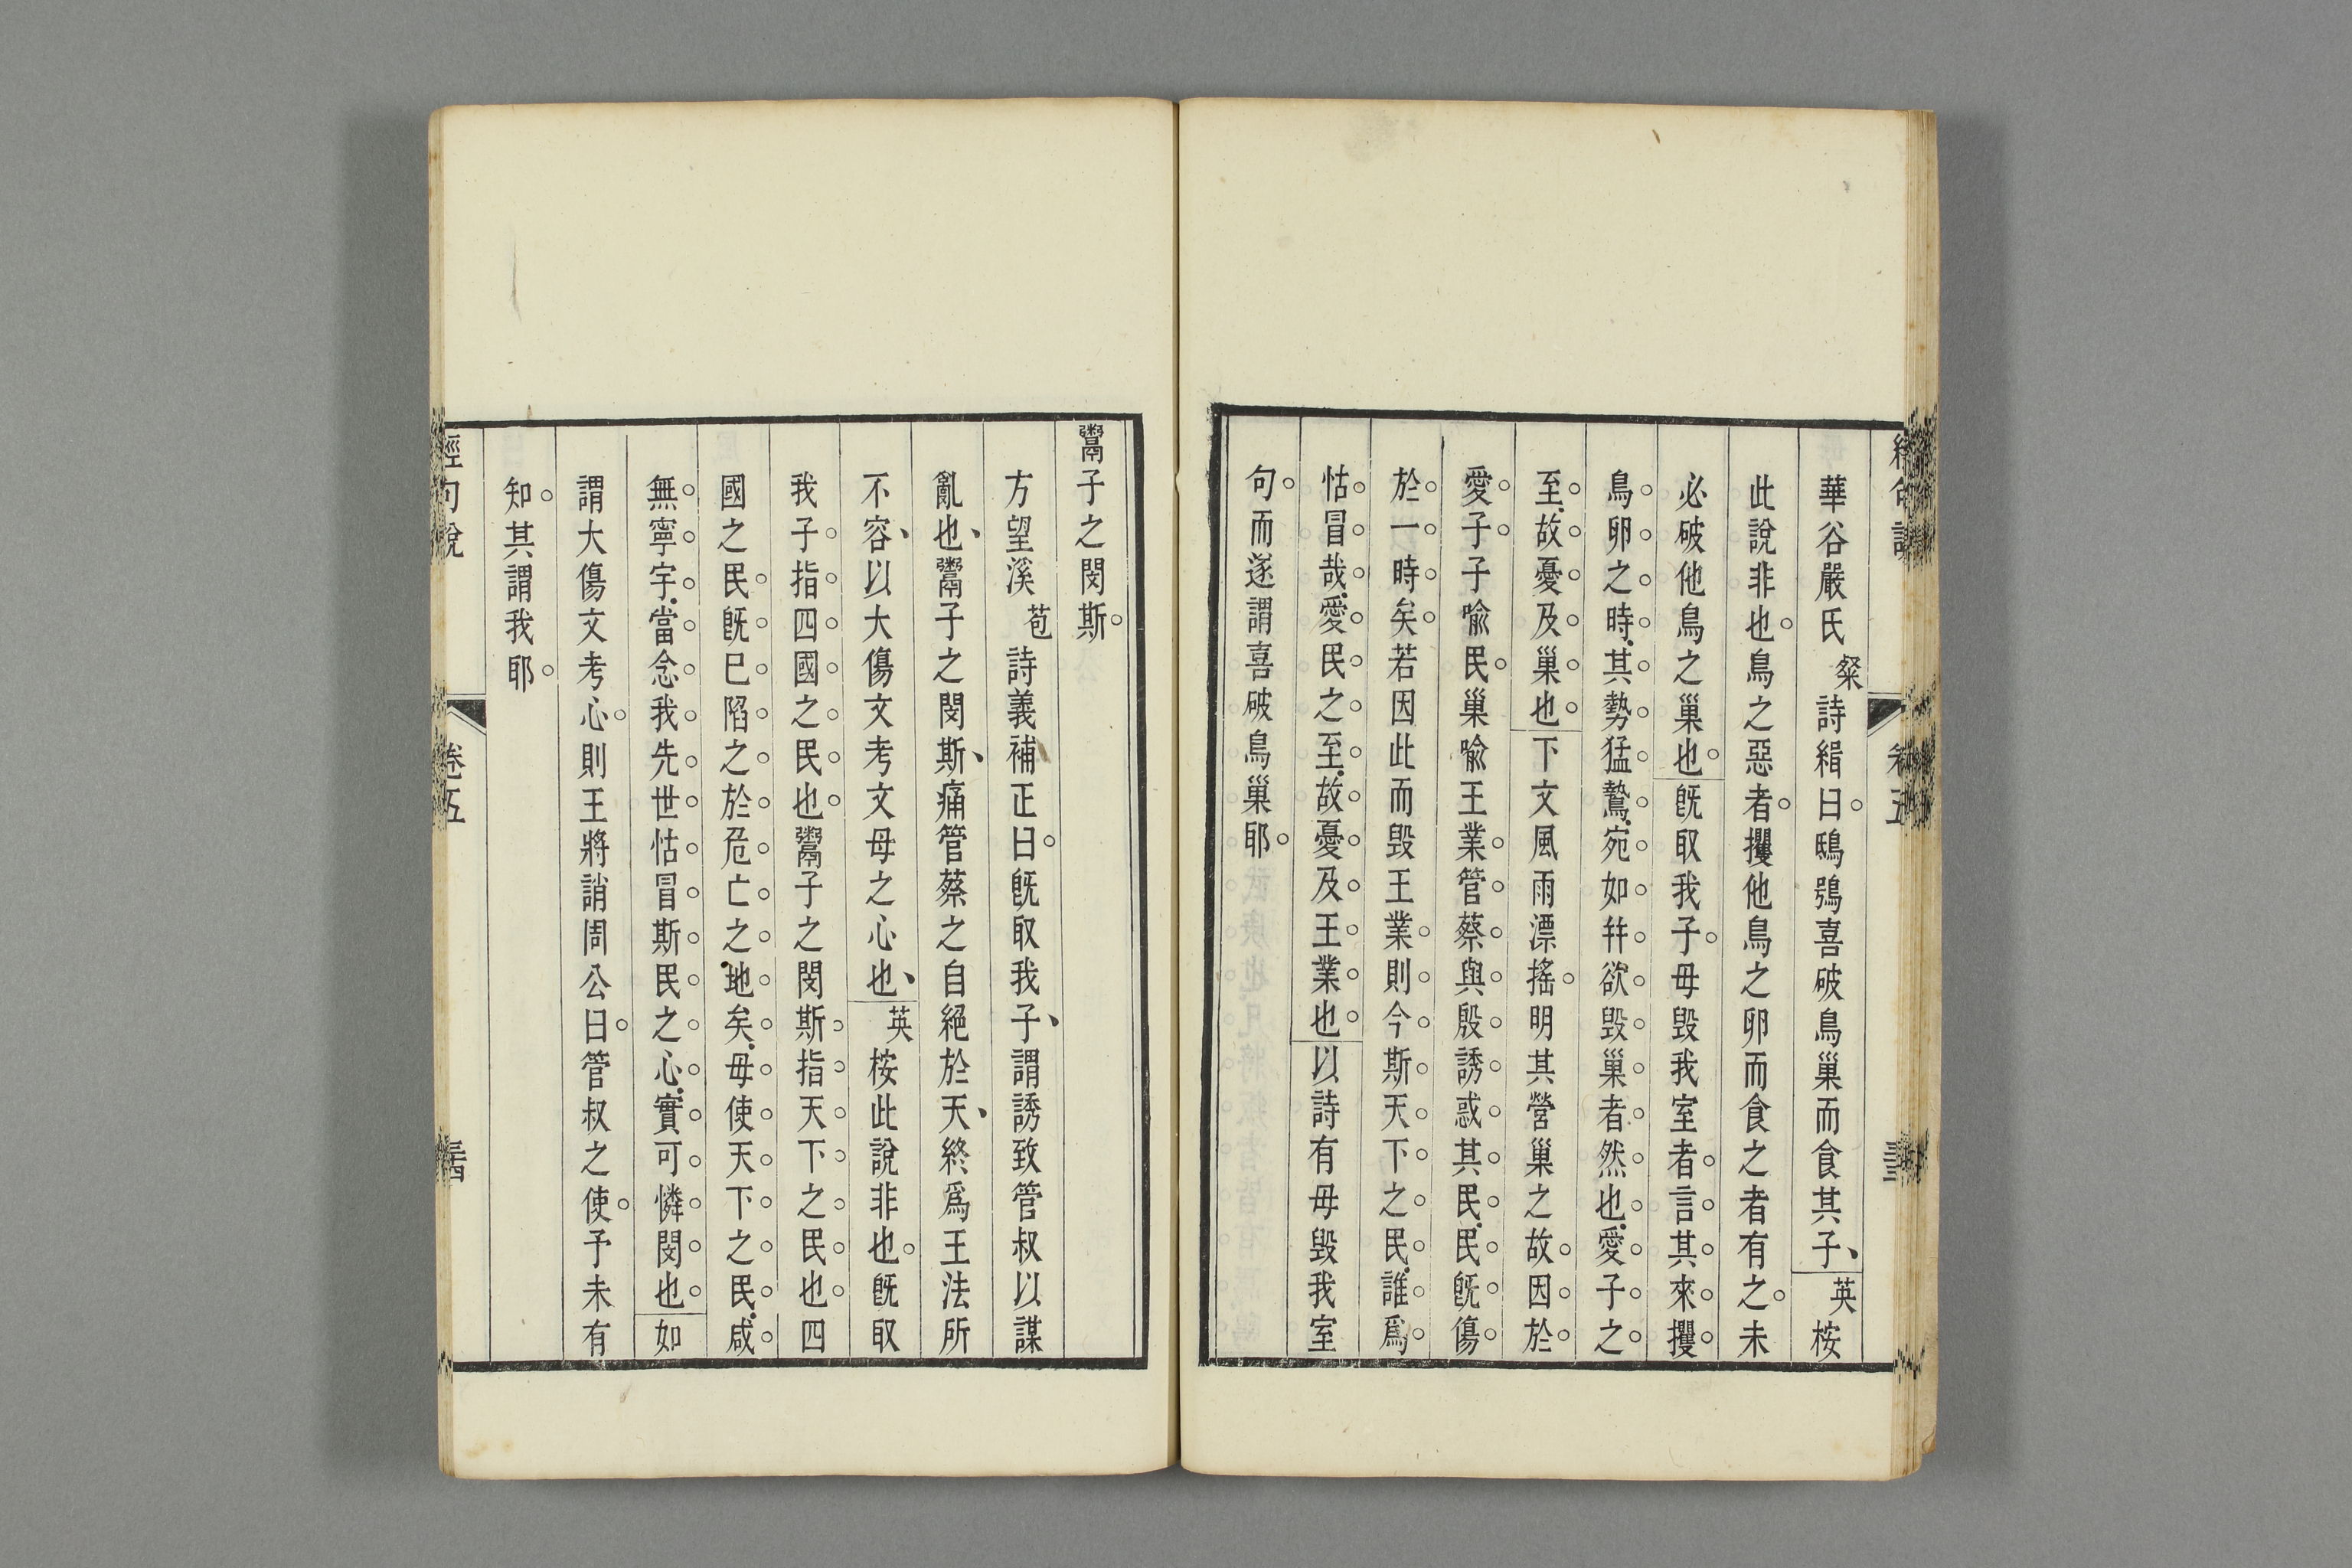 華谷嚴氏粲詩緝曰鴟鴞喜破鳥巢而食其子英桉
此說非也鳥之惡者攫他鳥之卵而食之者有之未
必破他鳥之巢也旣取我子毋毀我室者言其來攫
鳥卵之時其勢猛鷙宛如幷欲毀巢者然也愛子之
至故憂及巢也下文風雨漂搖明其營巢之故因於
愛子子喻民巢喻王業管蔡與殷誘惑其民民旣傷
於一時矣若因此而毀王業則今斯天下之民誰爲
怙冒哉愛民之至故憂及王業也以詩有毋毀我室
句而遂謂喜破鳥巢耶
鬻子之閔斯
方望溪苞詩義補正曰旣取我子謂誘致管叔以謀
亂也鬻子之閔斯痛管蔡之自絕於天終爲王法所
不容以大傷文考文母之心也英桉此說非也旣取
我子指四國之民也鬻子之閔斯指天下之民也四
國之民旣已陷之於危亡之地矣毋使天下之民咸
無寧宇當念我先世怙冒斯民之心實可憐閔也如
謂大傷文考心則王將誚周公曰管叔之使予未有
知其謂我耶
經句說 卷五 三四